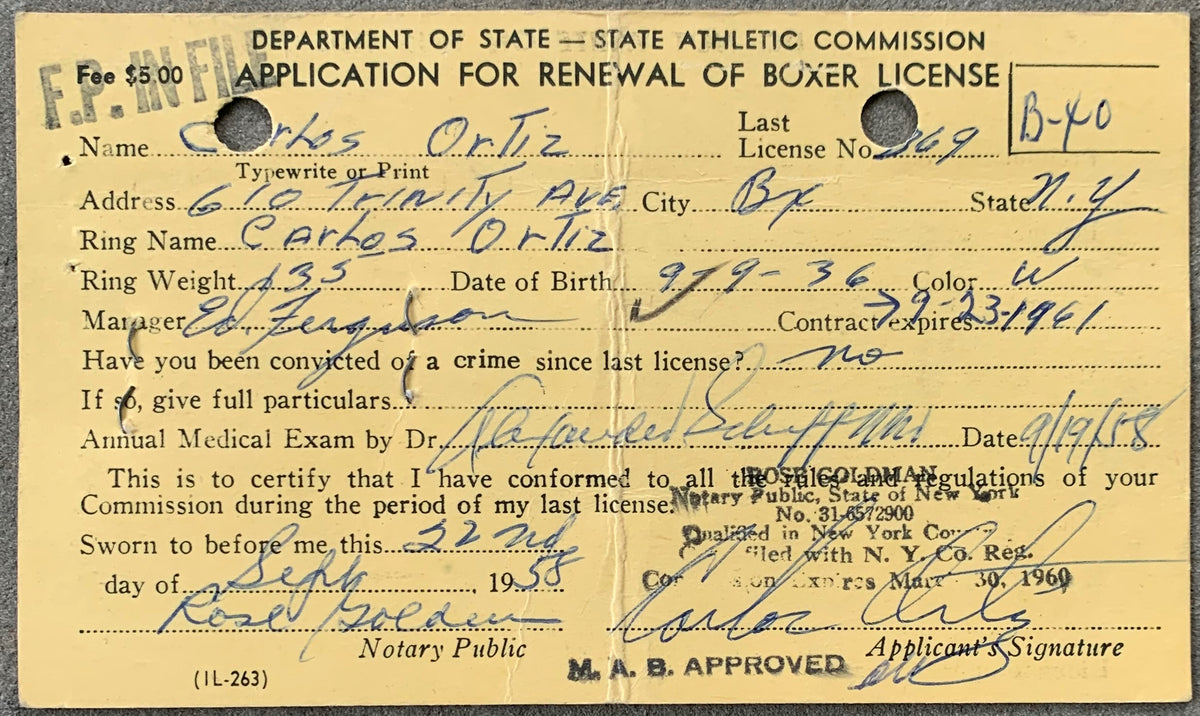 DEPARTMENT OF STATE — STATE ATHLETIC COMMISSION
F.P. IN FILE
Fee $5.00 APPLICATION FOR RENEWAL OF BOXER LICENSE
B-40
Name Carlos Ortiz Last License No. 369
Typewrite or Print
Address 610 Trinity Ave City Bx State N.Y
Ring Name Carlos Ortiz
Ring Weight 135 Date of Birth 9-9-36 Color W
Manager Ed. Ferguson Contract expires 9-23-1961
Have you been convicted of a crime since last license? no
If so, give full particulars
Annual Medical Exam by Dr. Alexander Schiff MD Date 9/19/58
This is to certify that I have conformed to all the rules and regulations of your
Commission during the period of my last license.
ROSE GOLDMAN
Notary Public, State of New York
No. 31-6572900
Qualified in New York
filed with N. Y. Co. Reg.
Expires 30, 1960
Sworn to before me this 22nd
day of Sept, 1958
Rose Goldman Carlos Ortiz
Notary Public Applicant's Signature
M. A. B. APPROVED
(IL-263)